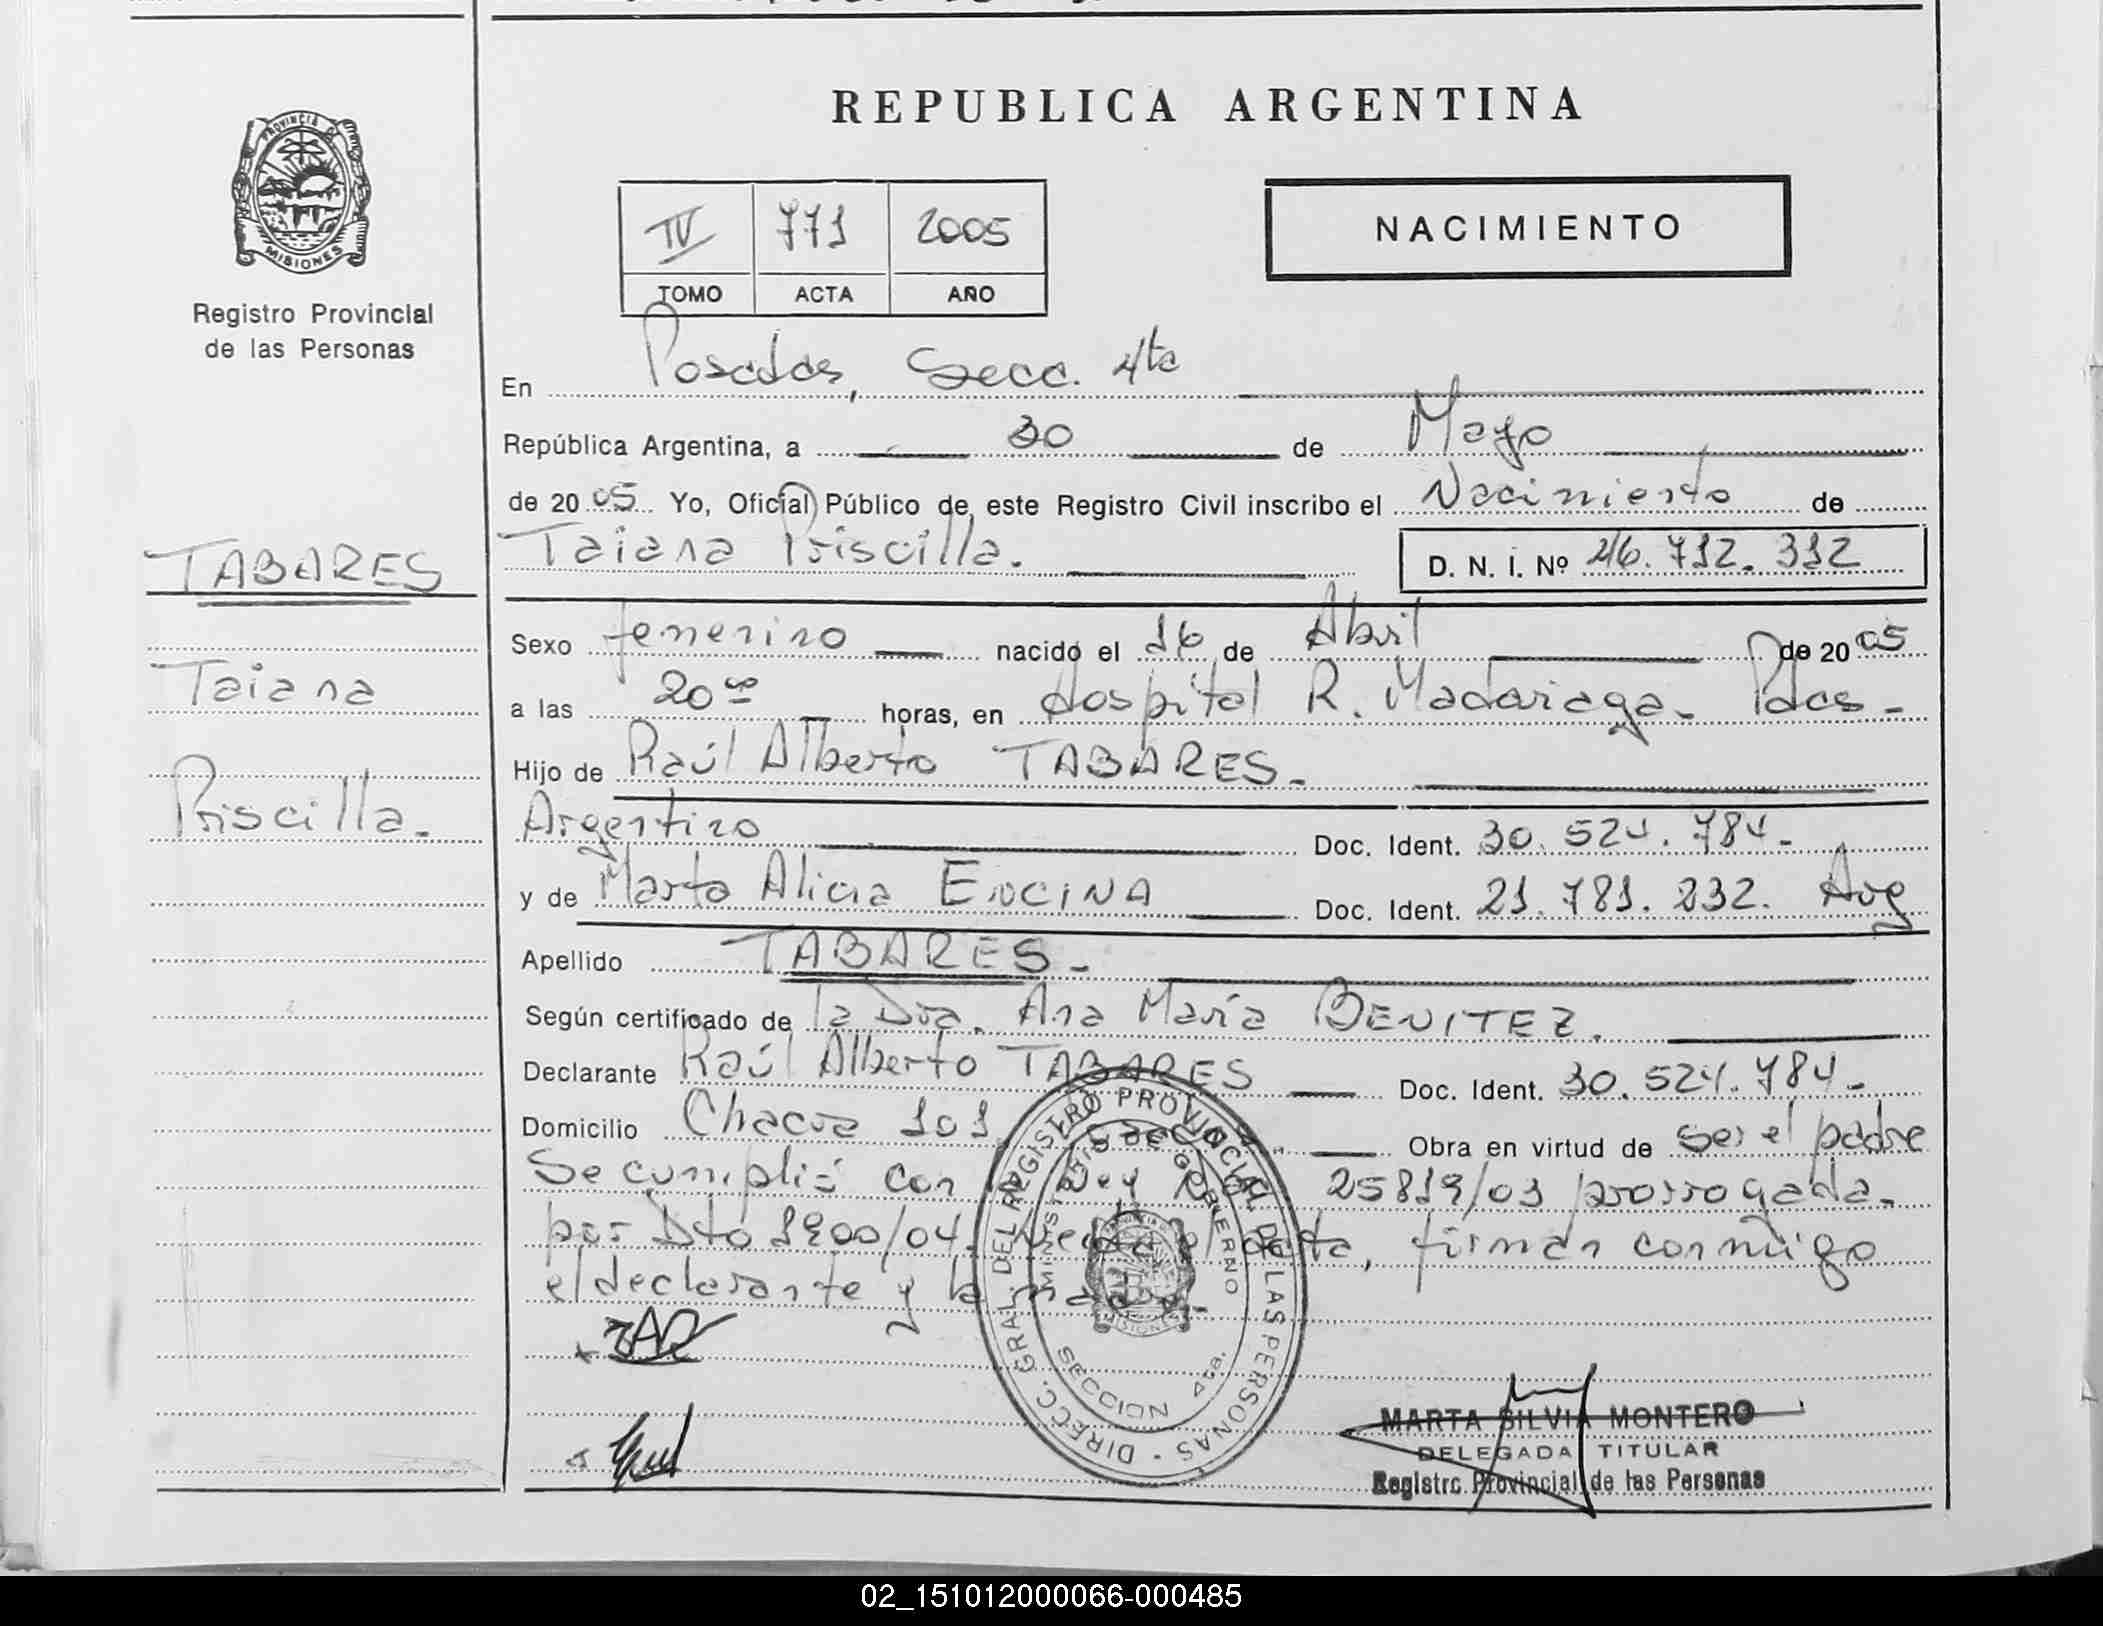 REPUBLICA ARGENTINA
PROVINCIA DE MISIONES
Registro Provincial
de las Personas
IV 771 2005
TOMO ACTA AÑO
NACIMIENTO
En Posadas, Secc. 4ta
República Argentina, a 30 de Mayo
de 2005 Yo, Oficial Público de este Registro Civil inscribo el Nacimiento de
Taiana Priscilla.
D. N. I. Nº 46.712.312
TABARES
Taiana
Priscilla.
Sexo femenino nacido el 16 de Abril de 2005
a las 20 horas, en Hospital R. Madariaga. Pdas.
Hijo de Raúl Alberto TABARES.
Argentino Doc. Ident. 30.524.784.
y de Marta Alicia ENCINA Doc. Ident. 21.781.232. Arg
Apellido TABARES.
Según certificado de la Dra. Ana María BENITEZ.
Declarante Raúl Alberto TABARES Doc. Ident. 30.524.784.
Domicilio Chacra 101 Obra en virtud de ser el padre
Se cumplió con Ley 25819/03 prorrogada
por Dto 1900/04. acta, firman conmigo
el declarante y la madre.
DIRECC. GRAL. DEL REGISTRO PROVINCIAL DE LAS PERSONAS
MINISTERIO DE GOBIERNO
MISIONES
SECCION 4ta.
MARTA SILVIA MONTERO
DELEGADA TITULAR
Registro Provincial de las Personas
02_151012000066-000485